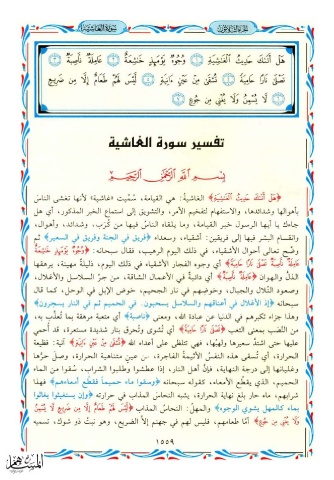 سورة الغاشية
هَلْ أَتَىٰكَ حَدِيثُ ٱلْغَٰشِيَةِ ۝١ وُجُوهٌ يَوْمَئِذٍ خَٰشِعَةٌ ۝٢ عَامِلَةٌ نَّاصِبَةٌ ۝٣
تَصْلَىٰ نَارًا حَامِيَةً ۝٤ تُسْقَىٰ مِنْ عَيْنٍ ءَانِيَةٍ ۝٥ لَّيْسَ لَهُمْ طَعَامٌ إِلَّا مِن ضَرِيعٍ
۝٦ لَّا يُسْمِنُ وَلَا يُغْنِى مِن جُوعٍ ۝٧
تفسير سورة الغاشية
بِسْمِ ٱللَّهِ ٱلرَّحْمَٰنِ ٱلرَّحِيمِ
﴿هَلْ أَتَىٰكَ حَدِيثُ ٱلْغَٰشِيَةِ﴾ الغاشيةُ: هي القيامة، سُمّيت «غاشية» لأنها تغشى الناس
بأهوالها وشدائدها، والاستفهام لتفخيم الأمر، والتشويق إلى استماع الخبر المذكور، أي هل
جاءك يا أيها الرسول خبر القيامة، وما يلقاه الناس فيها من كُرَب، وشدائد، وأهوال،
وانقسام البشر فيها إلى فريقين: أشقياء، وسعداء ﴿فريق في الجنة وفريق في السعير﴾ ثم
وضّح تعالى أحوال الأشقياء، في ذلك اليوم الرهيب، فقال سبحانه: ﴿وُجُوهٌ يَوْمَئِذٍ خَٰشِعَةٌ
عَامِلَةٌ نَّاصِبَةٌ﴾ أي وجوه الفجار الأشقياء، في ذلك اليوم، ذليلةٌ مهينة، يرهقها
الذلُّ والهوان ﴿عَامِلَةٌ نَّاصِبَةٌ﴾ أي دائبة في الأعمال الشاقة، من جرّ السلاسل والأغلال،
وصعود التلال والجبال، وخوضهم في نار الجحيم، خوض الإبل في الوحل، كما قال
سبحانه ﴿إذ الأغلال في أعناقهم والسلاسل يسحبون. في الحميم ثم في النار يسجرون﴾
وهذا جزاء تكبرهم في الدنيا عن عبادة الله، ومعنى ﴿ناصبة﴾ أي متعبة مرهقة بما تُعذَّب به،
من النَّصَب بمعنى التعب ﴿تَصْلَىٰ نَارًا حَامِيَةً﴾ أي تُشوى وتُحرق بنار شديدة مستعرة، قد أُحمي
عليها حتى اشتدّ سعيرها ولهبها، فهي تتلظى على أعداء الله ﴿تُسْقَىٰ مِنْ عَيْنٍ ءَانِيَةٍ﴾ آنية: فظيعة
الحرارة، أي تُسقى هذه النفس الأثيمة الفاجرة، من عينٍ متناهية الحرارة، وصل حرّها
وغليانها إلى درجة النهاية، فإن أهل النار، إذا عطشوا وطلبوا الشراب، سُقوا من الماء
الحميم، الذي يقطّع الأمعاء، كقوله سبحانه ﴿وسقوا ماء حميماً فقطع أمعاءهم﴾ فهذا
شرابهم، ماء حار بلغ نهاية الحرارة، يشبه النحاس المذاب في حرارته ﴿وإن يستغيثوا يغاثوا
بماء كالمهل يشوي الوجوه﴾ والمهلُ: النحاس المذاب ﴿لَّيْسَ لَهُمْ طَعَامٌ إِلَّا مِن ضَرِيعٍ لَّا يُسْمِنُ
وَلَا يُغْنِى مِن جُوعٍ﴾ أمّا طعامهم، فليس لهم في جهنم إلا الضريع، وهو نبتٌ ذو شوك، تسميه
١٥٥٩